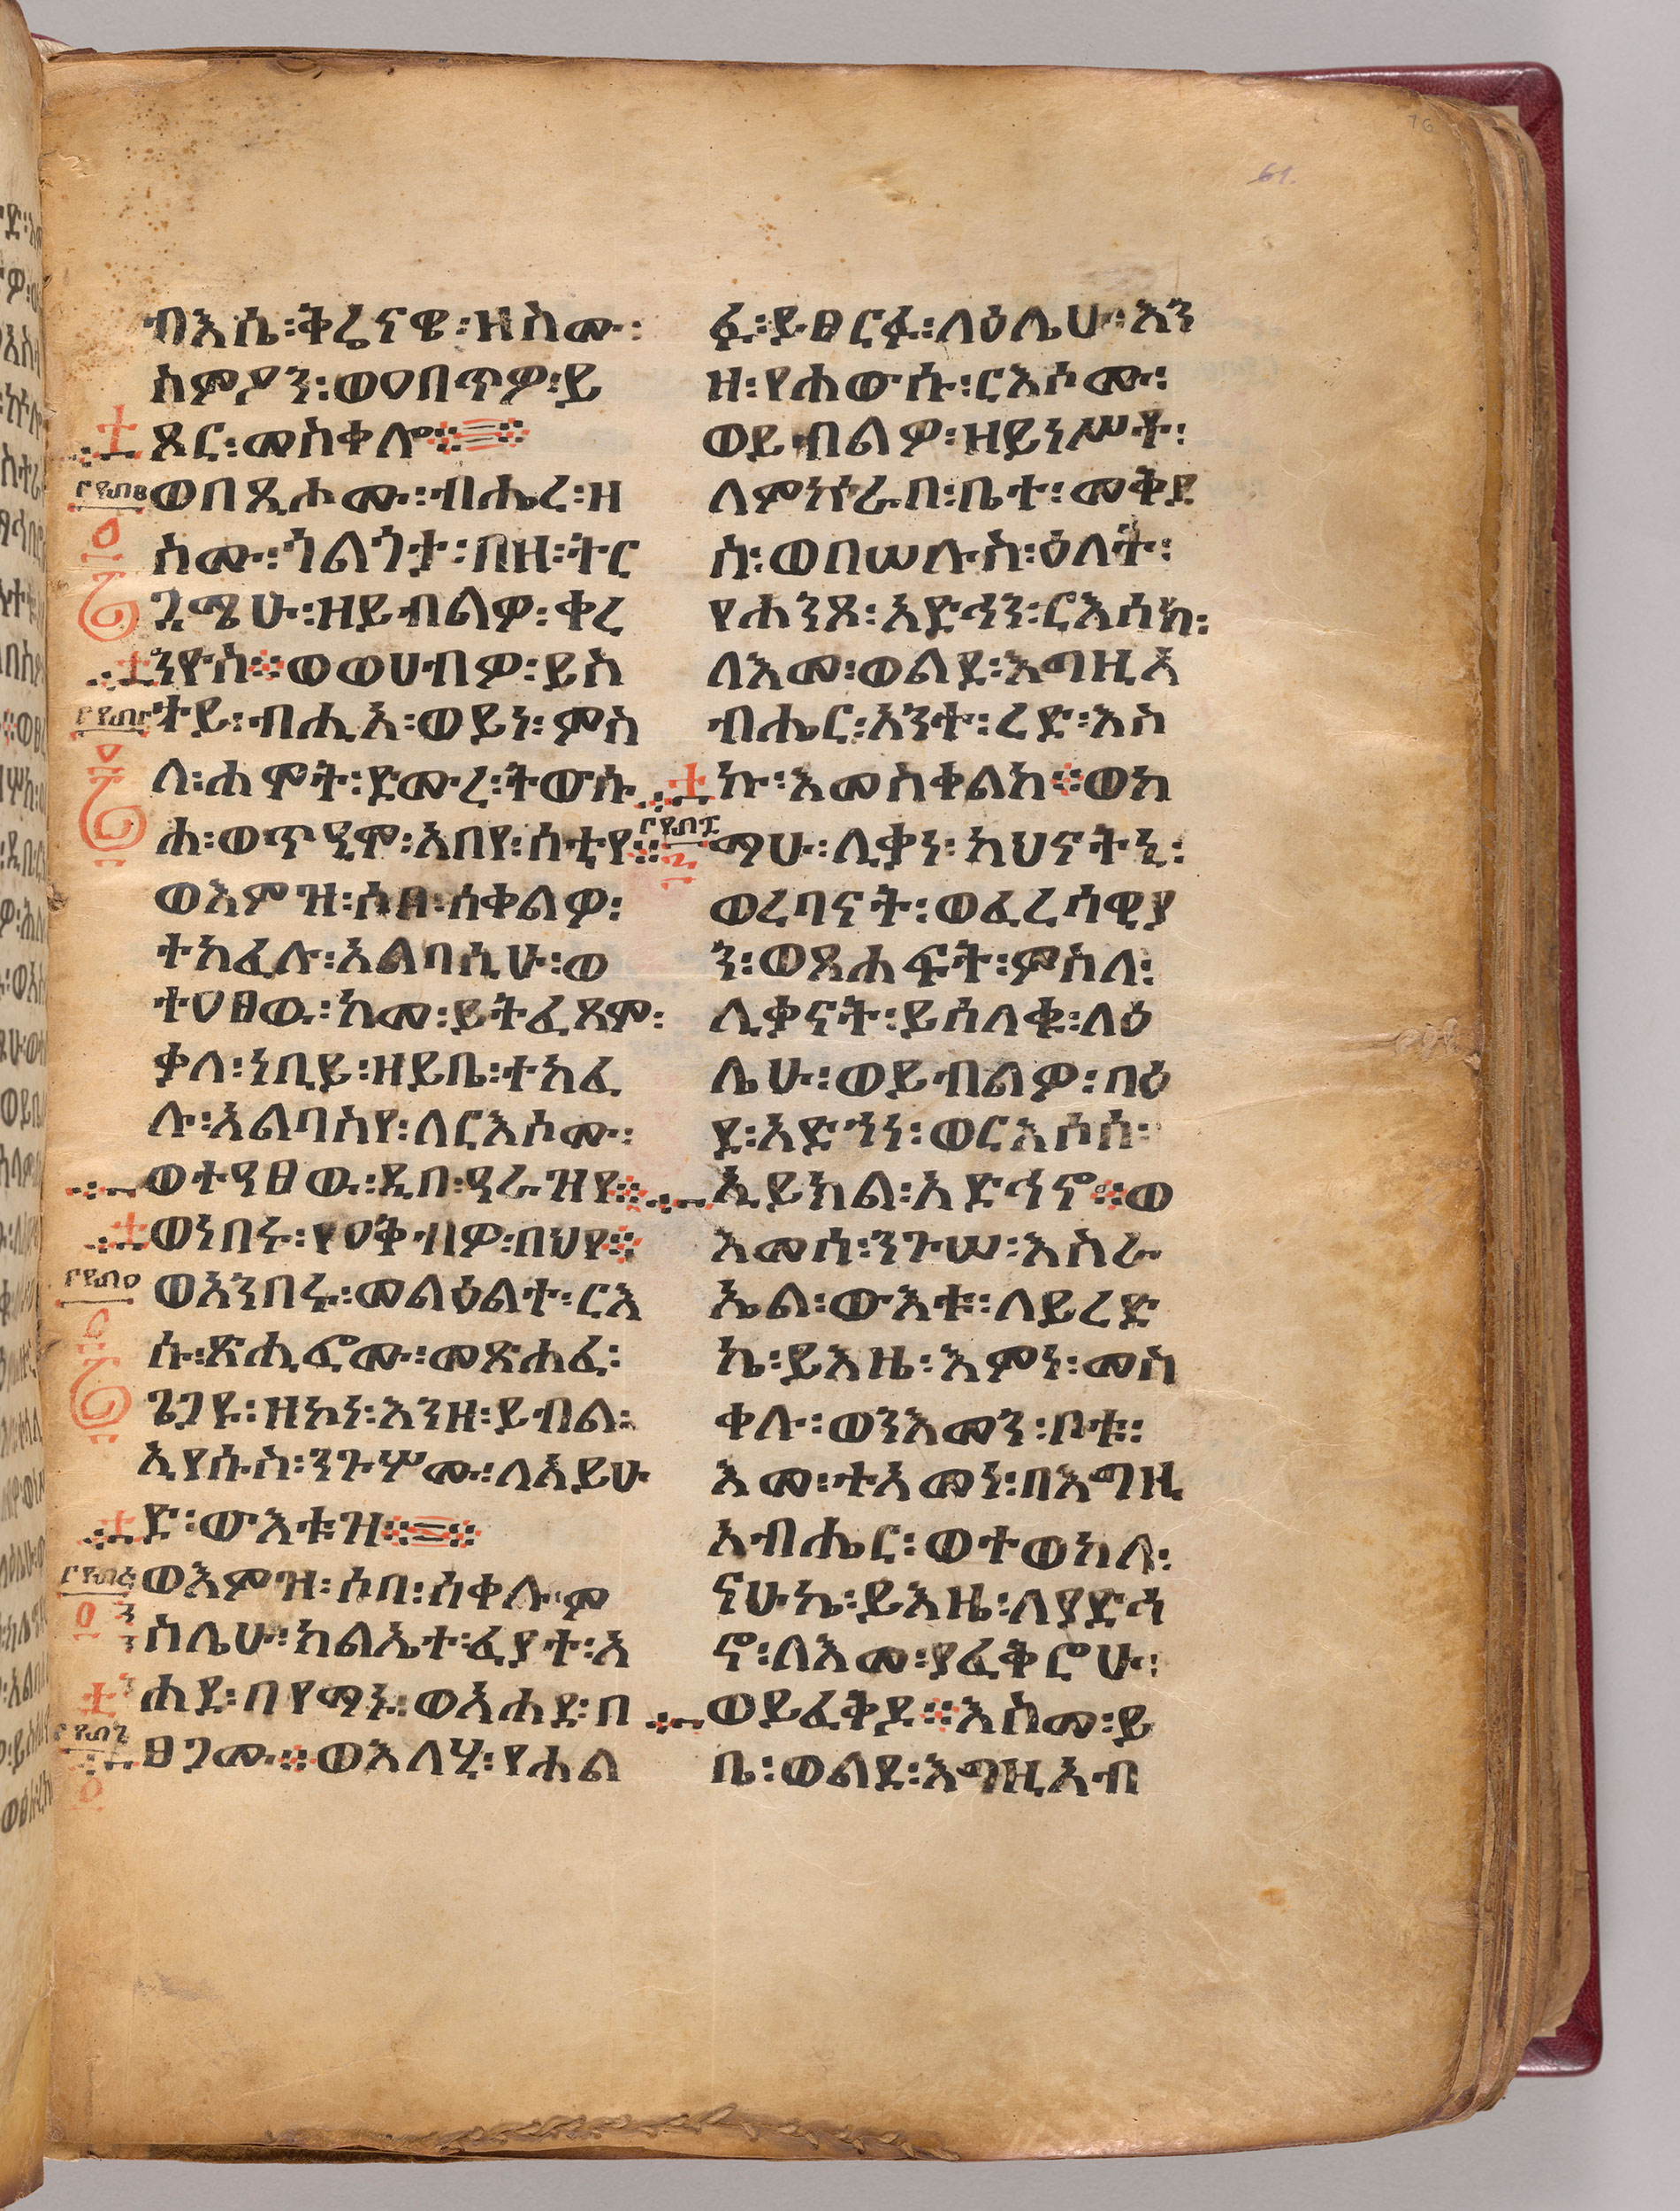 ብእሴ፡ቅሬናዌ፡ዘስሙ፡
ስምዖን፡ወዐበጥዎ፡ይ
ጹር፡መስቀሎ።
ወበጺሖሙ፡ብሔረ፡ዘ
ስሙ፡ጎልጎታ፡በዘ፡ትር
ጓሜሁ፡ዘይብልዎ፡ቀረ
ንዮስ።ወወሀብዎ፡ይስ
ተይ፡ብሒአ፡ወይነ፡ምስ
ለ፡ሐሞት፡ድሙረ፡ትውሱ
ሐ፡ወጥዒሞ፡አበየ፡ሰቲየ።
ወእምዝ፡ሶበ፡ሰቀልዎ፡
ተካፈሉ፡አልባሲሁ፡ወ
ተዐፀዉ፡ከመ፡ይትፈጸም፡
ቃለ፡ነቢይ፡ዘይቤ፡ተካፈ
ሉ፡አልባስየ፡ለርእሶሙ፡
ወተዓፀዉ፡ዲበ፡ዓራዝየ።
ወነበሩ፡የዐቅብዎ፡በህየ።
ወአንበሩ፡መልዕልተ፡ርእ
ሱ፡ጽሒፎሙ፡መጽሐፈ፡
ጌጋዩ፡ዘኮነ፡እንዘ፡ይብል፡
ኢየሱስ፡ንጉሦሙ፡ለአይሁ
ድ፡ውእቱዝ።
ወእምዝ፡ሶበ፡ሰቀሉ፡ም
ስሌሁ፡ክልኤተ፡ፈያተ፡አ
ሐደ፡በየማኑ፡ወአሐደ፡በ
ፀጋሙ።ወእለሂ፡የሐል
ፉ፡ይፀርፉ፡ላዕሌሁ፡እን
ዘ፡የሐውሱ፡ርእሶሙ፡
ወይብልዎ፡ዘይነሥት፡
ለምኵራበ፡ቤተ፡መቅደ
ስ፡ወበሠሉስ፡ዕለት፡
የሐንጾ፡አድኅን፡ርእሰከ፡
ለእመ፡ወልደ፡እግዚአ
ብሔር፡አንተ፡ረድ፡እስ
ኩ፡እመስቀልከ።ወከ
ማሁ፡ሊቃነ፡ካህናትኒ፡
ወረባናት፡ወፈረሳዊያ
ን፡ወጸሐፍት፡ምስለ፡
ሊቃናት፡ይሰለቁ፡ላዕ
ሌሁ፡ወይብልዎ፡ባዕ
ደ፡አድኀነ፡ወርእሶሰ፡
ኢይክል፡አድኅኖ።ወ
እመሰ፡ንጉሠ፡እስራ
ኤል፡ውእቱ፡ለይረድ
ኬ፡ይእዜ፡እምነ፡መስ
ቀሉ፡ወንእመን፡ቦቱ፡
እመ፡ተአመነ፡በእግዚ
አብሔር፡ወተወከለ፡
ናሁኬ፡ይእዜ፡ለያድኅ
ኖ፡ለእመ፡ያፈቅሮሁ፡
ወይፈቅዶ።እስመ፡ይ
ቤ፡ወልደ፡እግዚአብ